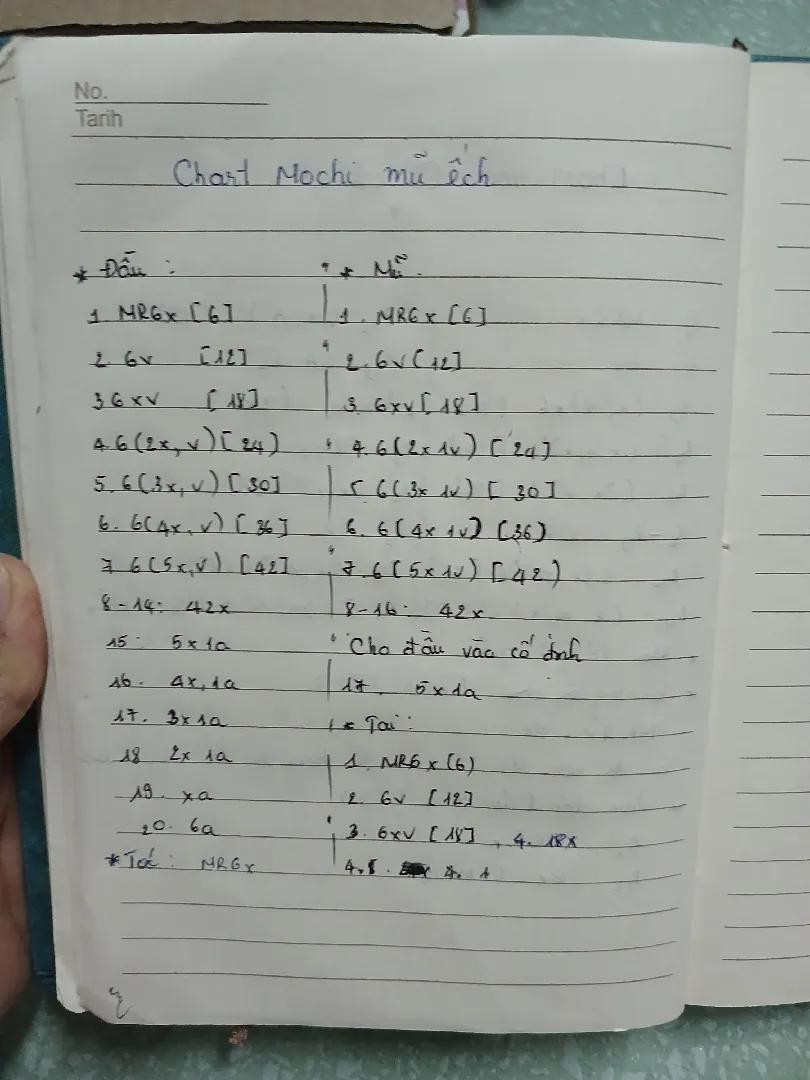 No.
Tarih
Chart Mochi mũ ếch
* Đầu :
1 MR6x [6]
2. 6v [12]
3 6xv [18]
4. 6(2x, v) [24)
5. 6(3x, v) [30]
6. 6(4x, v) [36]
7 6(5x, v) [42]
8-14: 42x
15: 5x1a
16. 4x, 1a
17. 3x1a
18 2x 1a
19. xa
20. 6a
* MR6x
* Mũ.
1. MR6x [6]
2. 6v [12]
3. 6xv [18]
4. 6(2x 1v) [24]
5 6(3x 1v) [30]
6. 6(4x 1v) (36)
7. 6(5x 1v) [42)
8-16: 42x
Cho đầu vào
17. 5x1a
* Tai :
1. MR6x (6)
2. 6v [12]
3. 6xv [18], 4. 18x